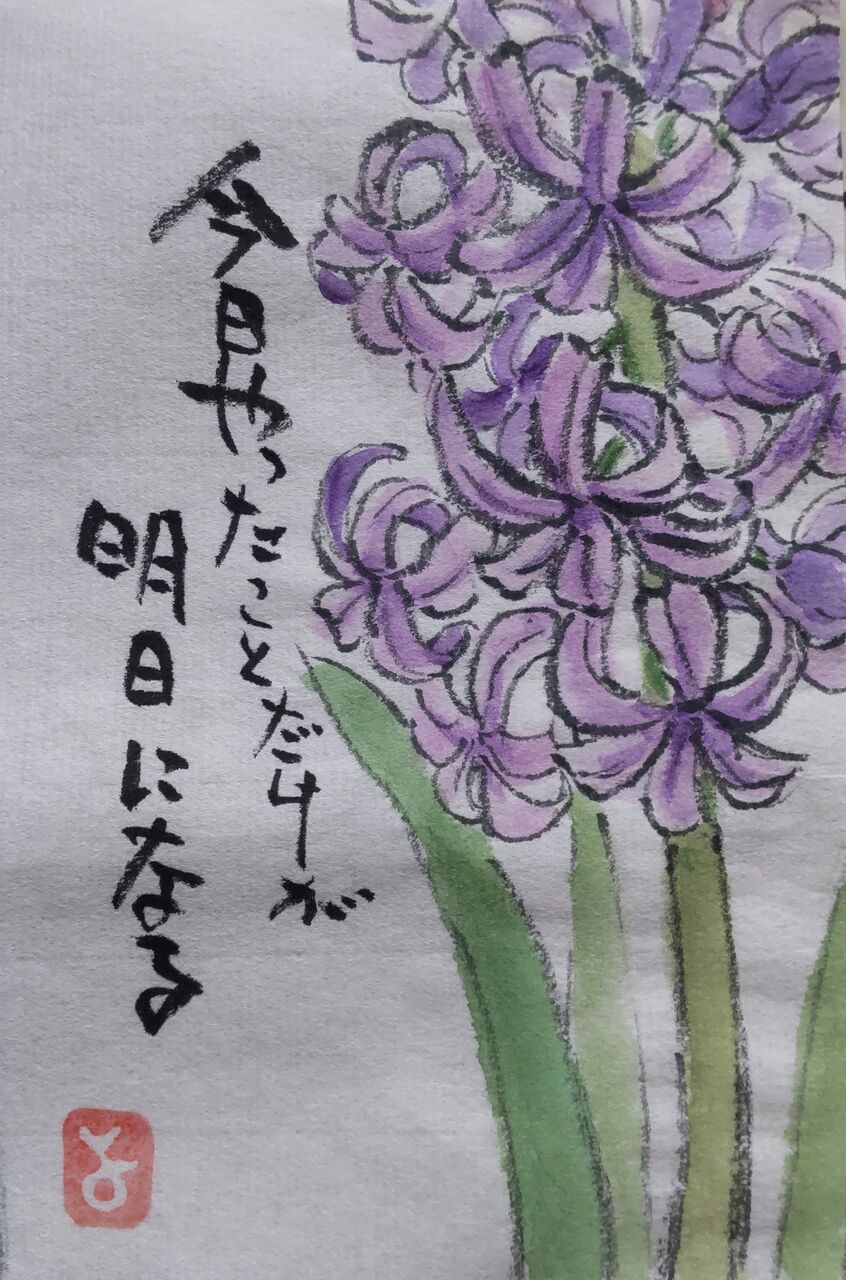 今日やったことだけが
明日になる